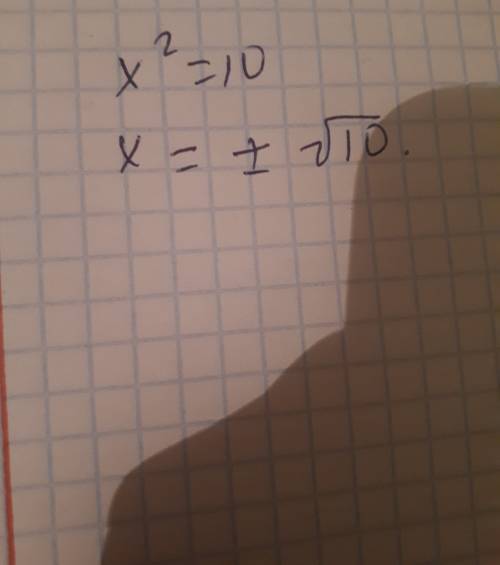 x² = 10
x = ± √10.